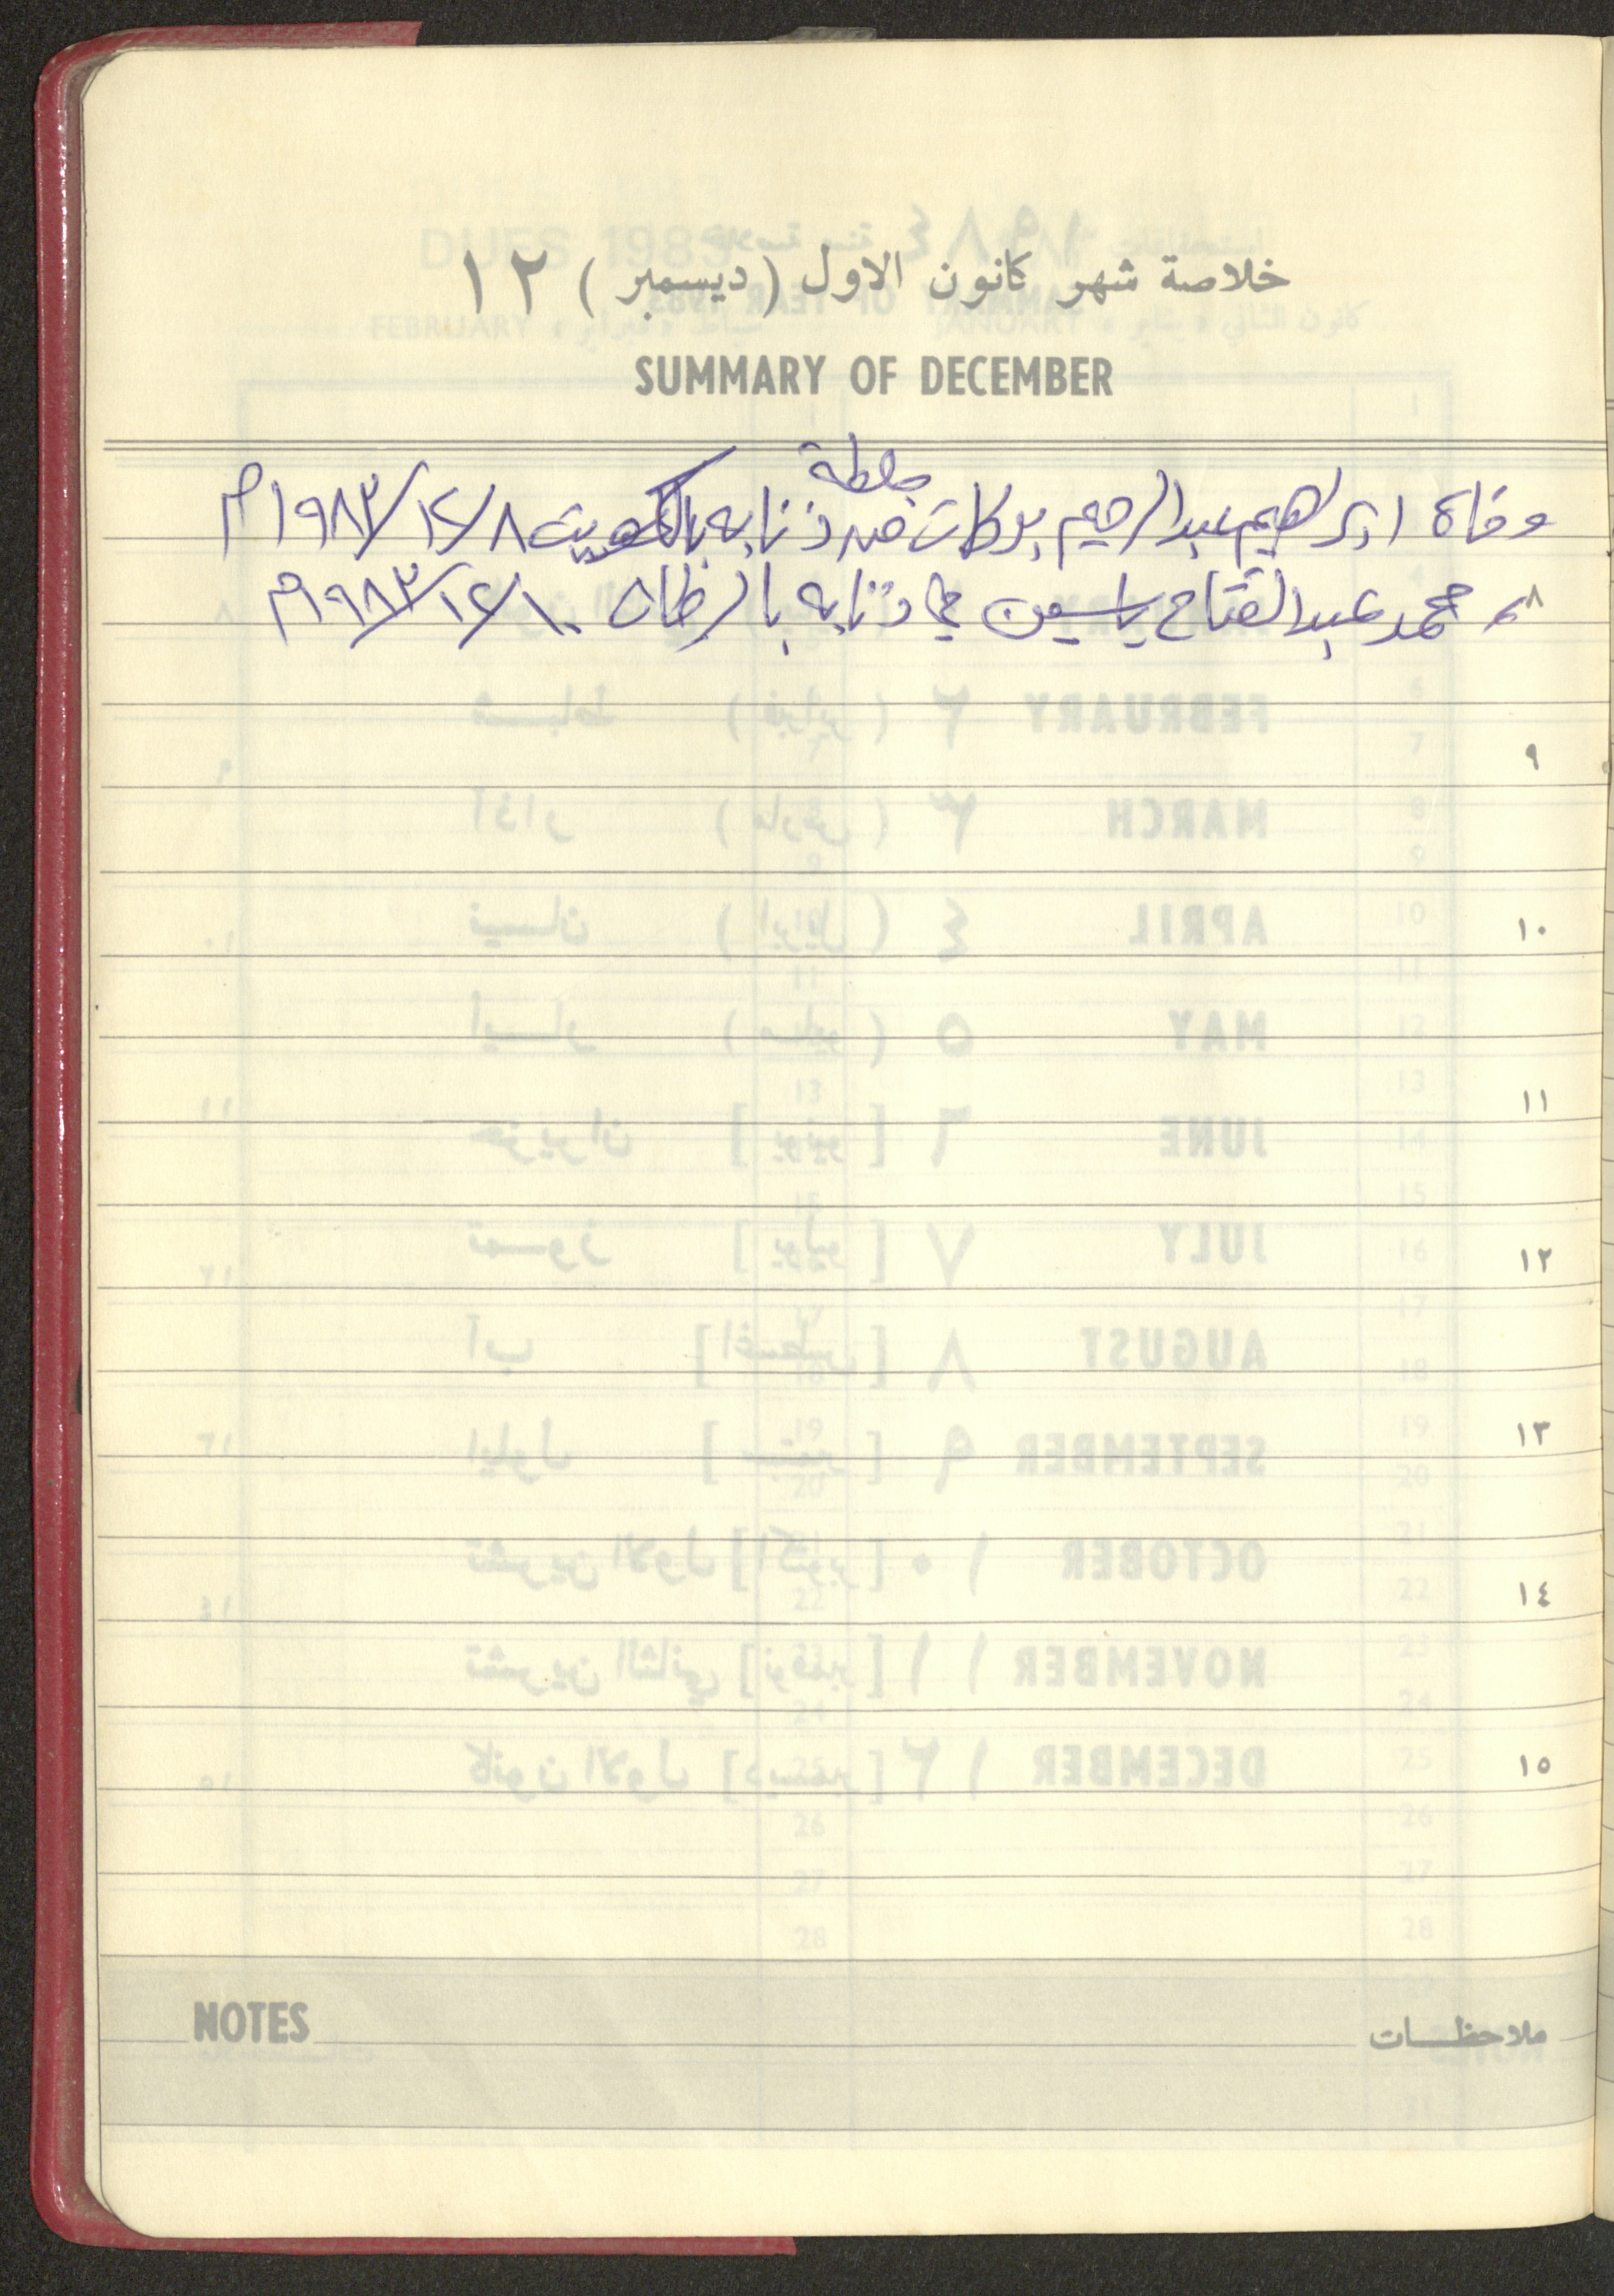 خلاصة شهر كانون الاول ( ديسمبر ) ١٢
SUMMARY OF DECEMBER
جلطة
وفاة ابراهيم عبدالرحيم بركات من ذنابه بالكويت ٨/١٢/١٩٨٣م
٨
محمد عبدالفتاح ياسين ذنابه ١٠/١٢/١٩٨٣م
٩
١٠
١١
١٢
١٣
١٤
١٥
NOTES ملاحظات